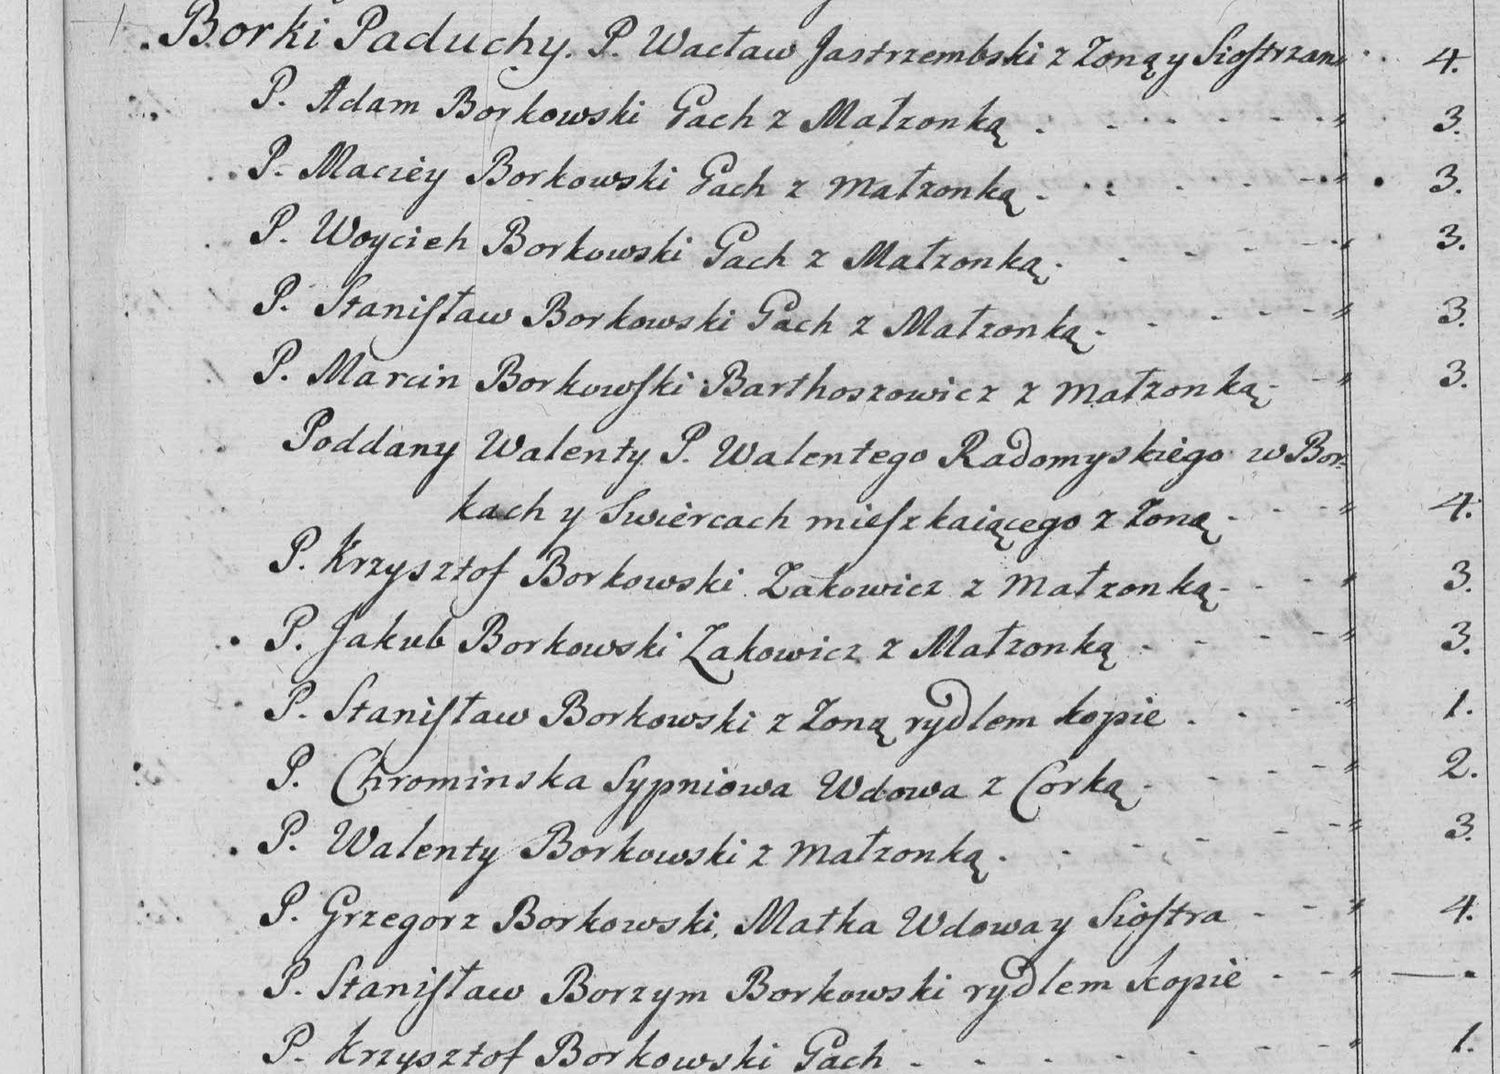 Borki Paduchy. P. Wacław Jastrzembski z Zoną y Siostrzan 4.
P. Adam Borkowski Gach z Małzonką 3.
P. Maciey Borkowski Gach z małzonką 3.
P. Woycieh Borkowski Gach z Małzonką 3.
P. Stanisław Borkowski Gach z Małzonką 3.
P. Marcin Borkowski Barthoszowicz z małzonką 3.
Poddany Walenty P. Walentego Radomyskiego w Bor=
kach y Swiercach mieszkaiącego z Zoną 4.
P. Krzysztof Borkowski Zakowicz z małzonką 3.
P. Jakub Borkowski Zakowicz z Małzonką 3.
P. Stanisław Borkowski z Zoną rydlem kopie 1.
P. Chrominska Sypniowa Wdowa z Corką 2.
P. Walenty Borkowski z małzonką 3.
P. Grzegorz Borkowski, Matka Wdowa y Siostra 4.
P. Stanisław Borzym Borkowski rydlem kopie —
P. Krzysztof Borkowski Gach 1.